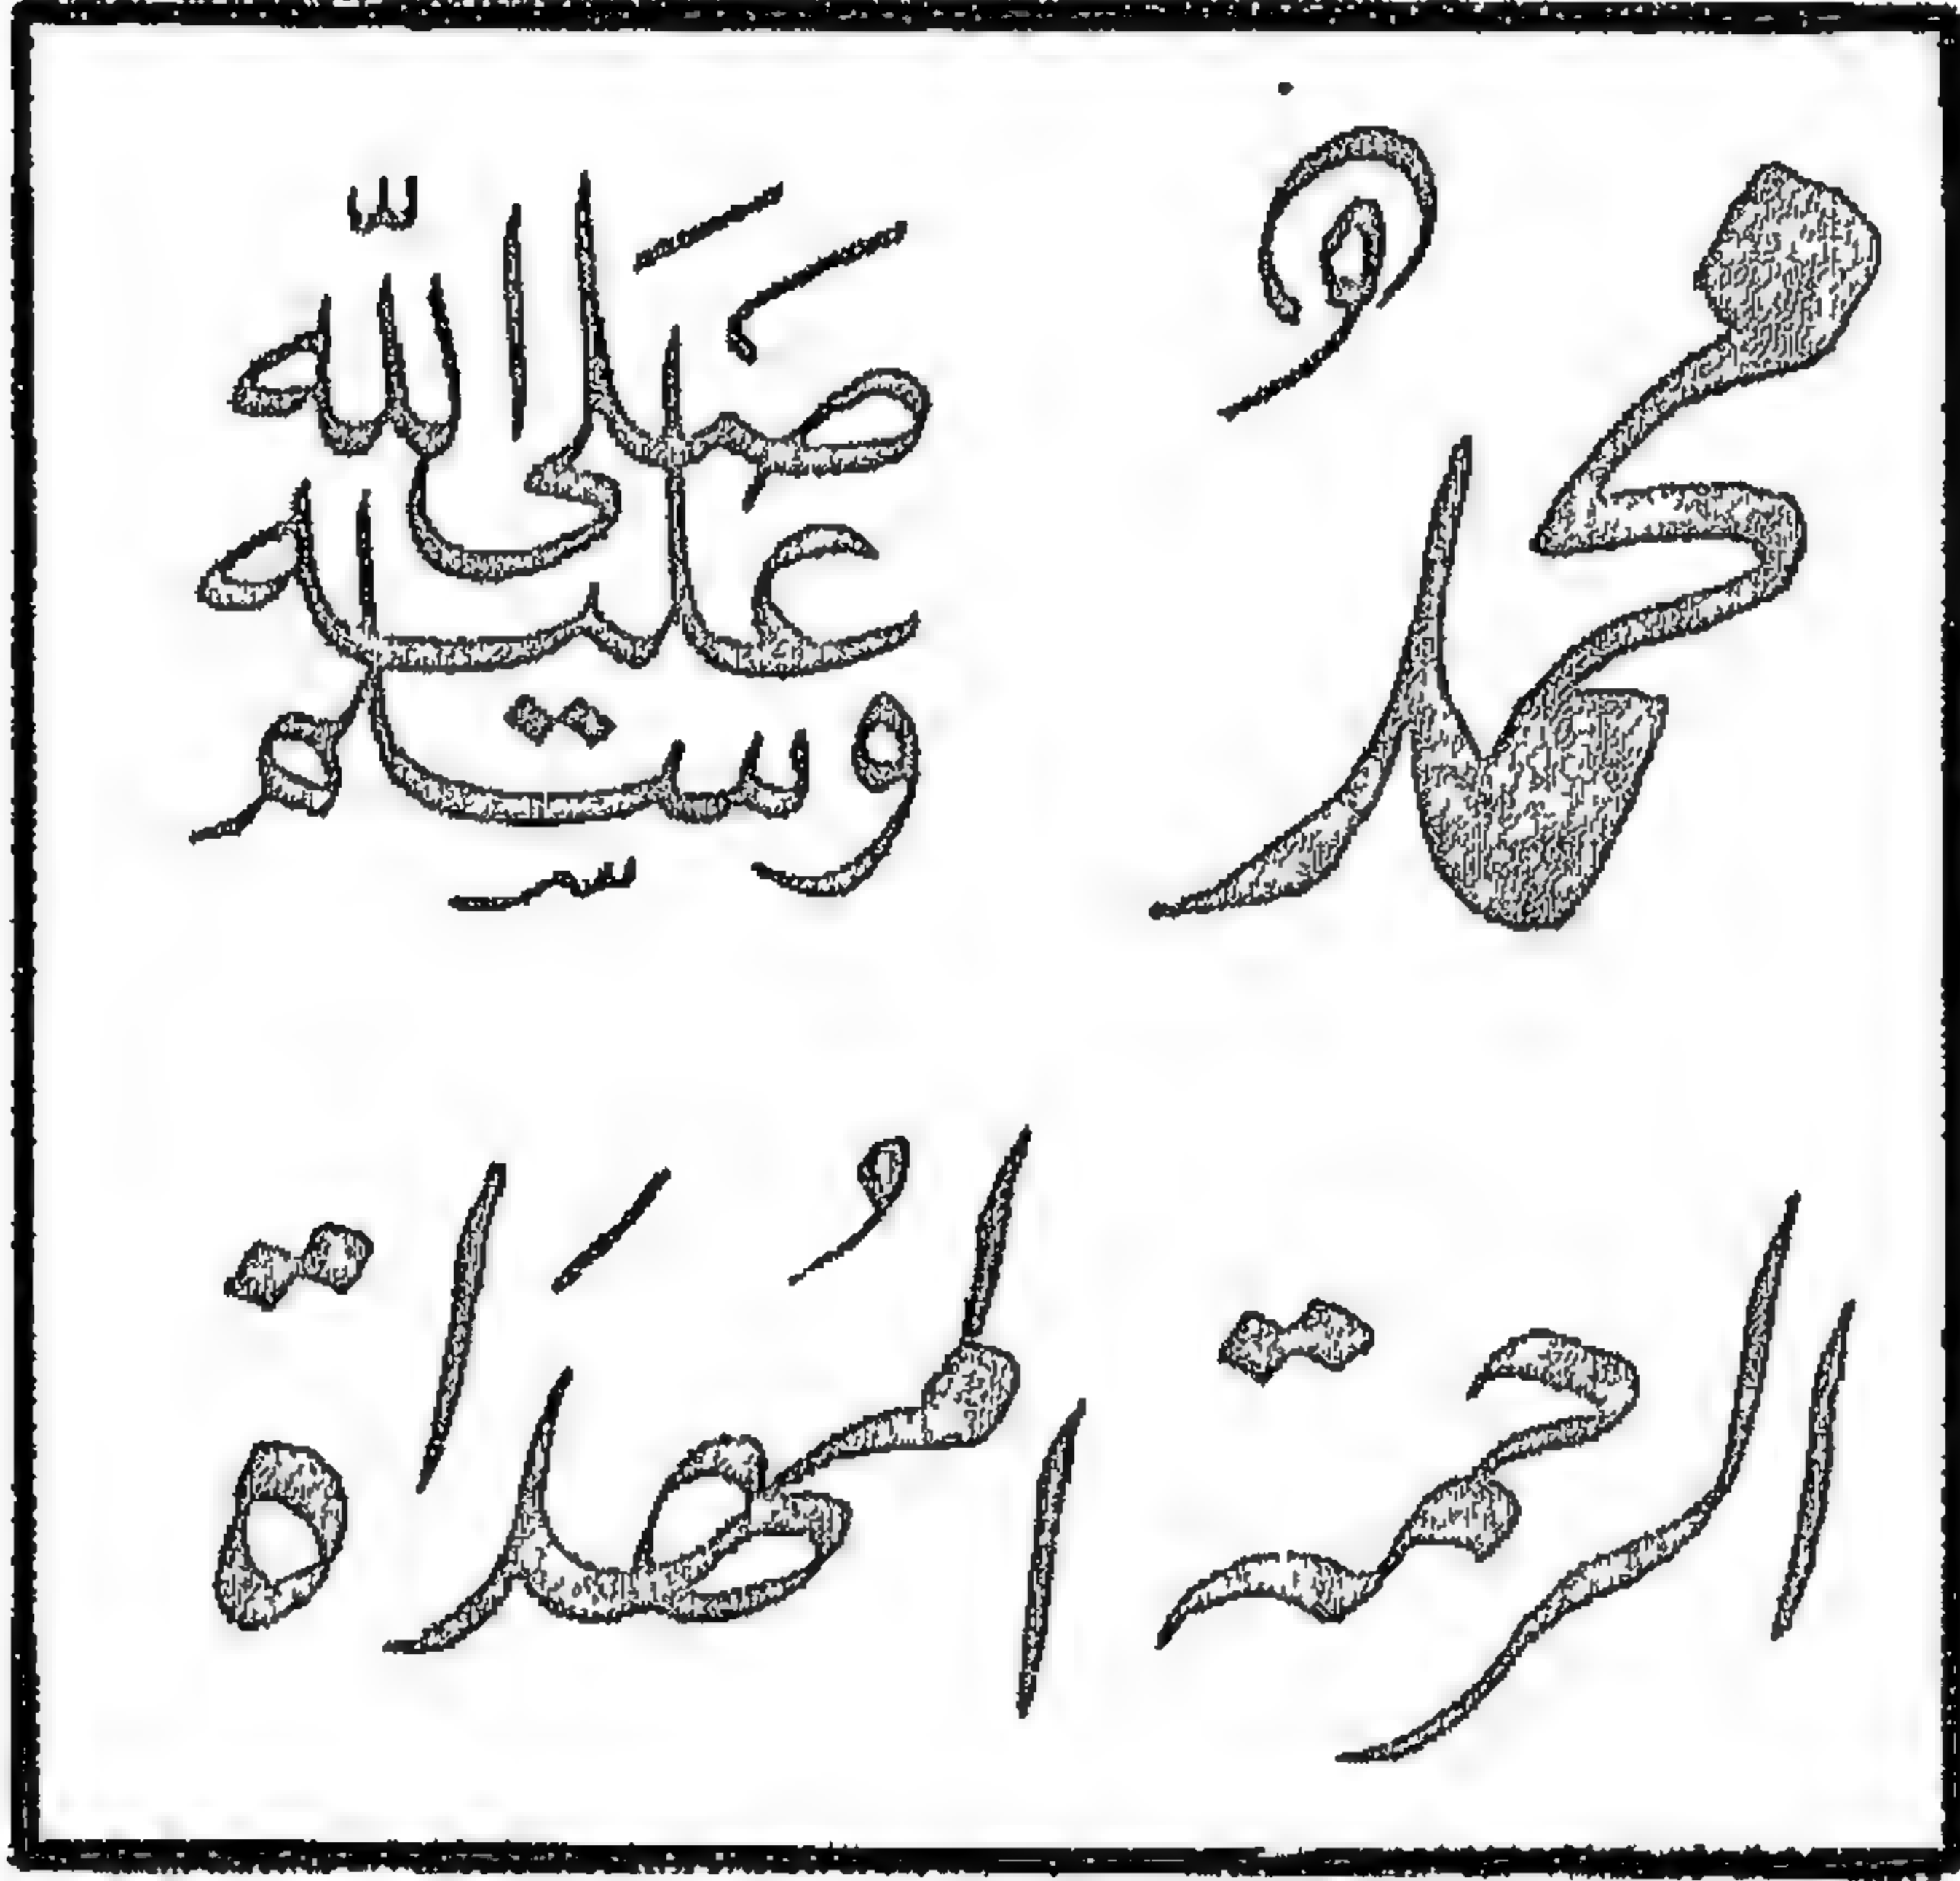 محمد صلى الله عليه وسلم
الرحمة المُهدَاة